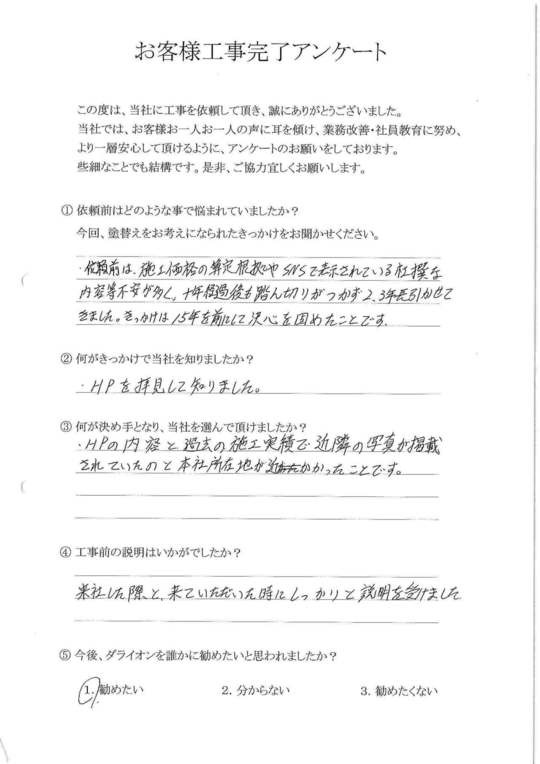 お客様工事完了アンケート
この度は、当社に工事を依頼して頂き、誠にありがとうございました。
当社では、お客様お一人お一人の声に耳を傾け、業務改善・社員教育に努め、
より一層安心して頂けるように、アンケートのお願いをしております。
些細なことでも結構です。是非、ご協力宜しくお願いします。
① 依頼前はどのような事で悩まれていましたか？
今回、塗替えをお考えになられたきっかけをお聞かせください。
・依頼前は、施工価格の算定根拠やSNSで表示されている杜撰な
内容等不安が多く、十年経過後も踏ん切りがつかず2、3年長引かせて
きました。きっかけは15年を前にして決心を固めたことです。
② 何がきっかけで当社を知りましたか？
・HPを拝見して知りました。
③ 何が決め手となり、当社を選んで頂けましたか？
・HPの内容と過去の施工実績で近隣の写真が掲載
されていたのと本社所在地が近かったことです。
④ 工事前の説明はいかがでしたか？
来社した際と、来ていただいた時にしっかりと説明を受けました
⑤ 今後、ダライオンを誰かに勧めたいと思われましたか？
1. 勧めたい 2. 分からない 3. 勧めたくない